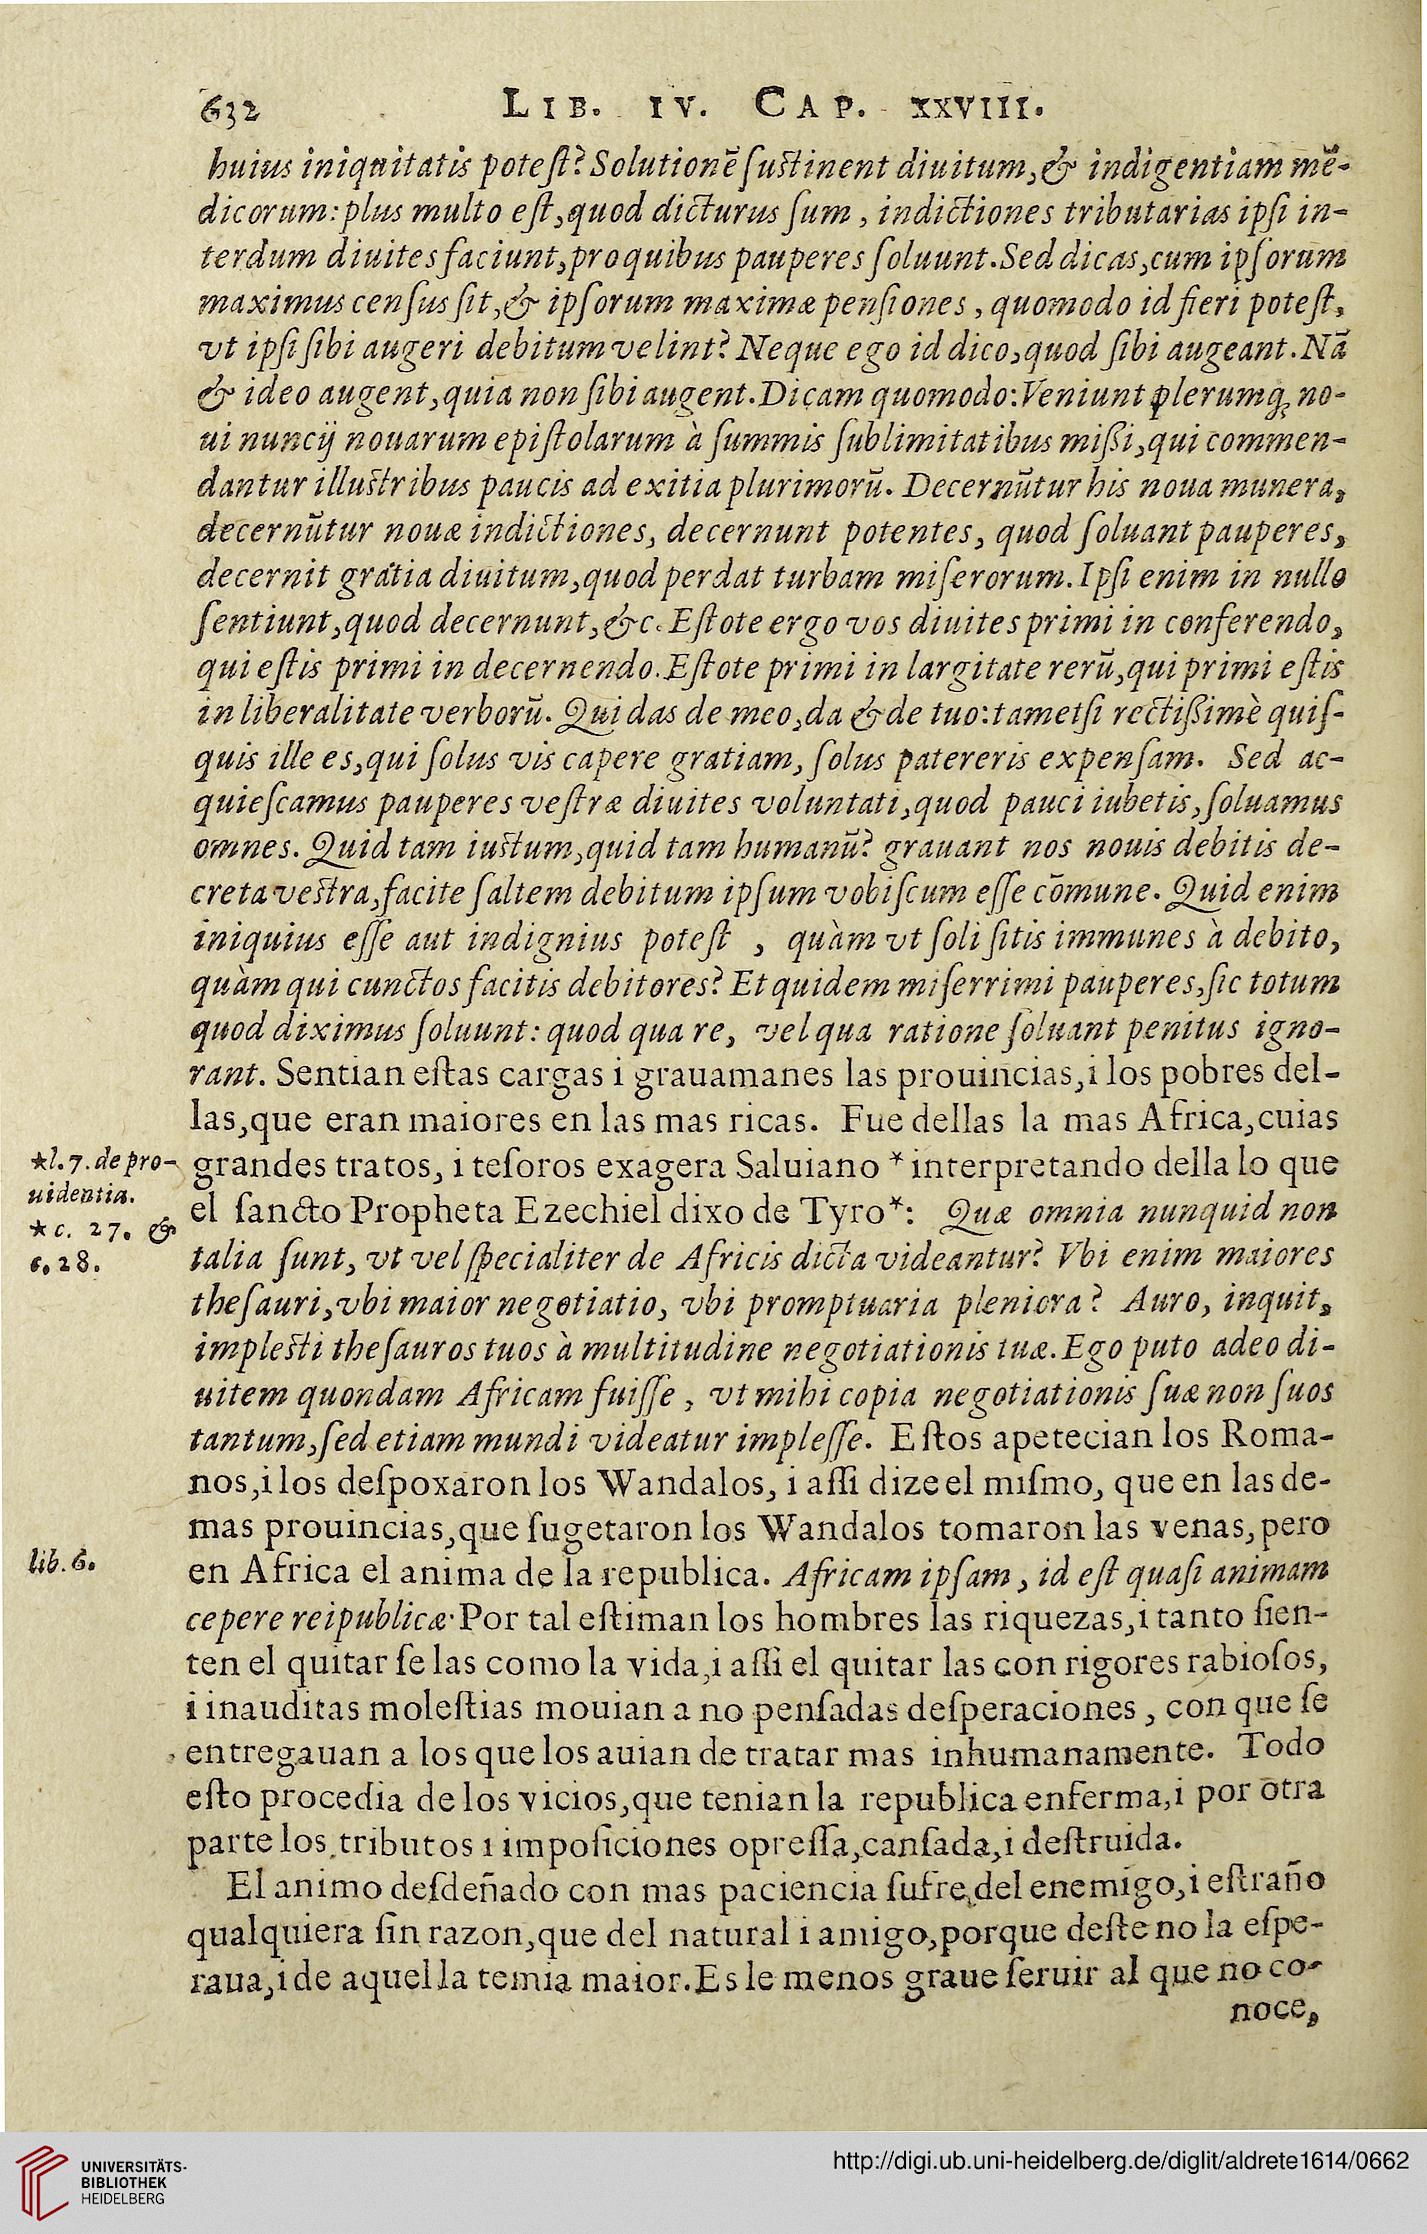 632 LIB. IV. CAP. XXVIII.
huius iniquitatis poteſt? Solutionẽ ſuſtinent diuitum, & indigentiam mẽ-
dicorum: plus multo eſt, quod dicturus ſum, indictiones tributarias ipſi in-
terdum diuites faciunt, pro quibus pauperes ſoluunt. Sed dicas, cum ipſorum
maximus cenſus ſit, & ipſorum maximæ penſiones, quomodo id fieri poteſt,
vt ipſi ſibi augeri debitum velint? Neque ego id dico, quod ſibi augeant. Nã
& ideo augent, quia non ſibi augent. Dicam quomodo: Veniunt plerumq; no-
ui nuncij nouarum epiſtolarum à ſummis ſublimitatibus miſsi, qui commen-
dantur illuſtribus paucis ad exitia plurimorũ. Decernũtur his noua munera,
decernũtur nouæ indictiones, decernunt potentes, quod ſoluant pauperes,
decernit gratia diuitum, quod perdat turbam miſerorum. Ipſi enim in nullo
ſentiunt, quod decernunt, &c. Eſtote ergo vos diuites primi in conferendo,
qui eſtis primi in decernendo. Eſtote primi in largitate rerũ, qui primi eſtis
in liberalitate verborũ. Qui das de meo, da & de tuo: tametſi rectiſsimè quiſ-
quis ille es, qui ſolus vis capere gratiam, ſolus patereris expenſam. Sed ac-
quieſcamus pauperes veſtræ diuites voluntati, quod pauci iubetis, ſoluamus
omnes. Quid tam iuſtum, quid tam humanũ? grauant nos nouis debitis de-
creta veſtra, facite ſaltem debitum ipſum vobiſcum eſſe cõmune. Quid enim
iniquius eſſe aut indignius poteſt, quàm vt ſoli ſitis immunes à debito,
quàm qui cunctos facitis debitores? Et quidem miſerrimi pauperes, ſic totum
quod diximus ſoluunt: quod qua re, vel qua ratione ſoluant penitus igno-
rant. Sentian eſtas cargas i grauamanes las prouincias, i los pobres del-
las, que eran maiores en las mas ricas. Fue dellas la mas Africa, cuias
grandes tratos, i teſoros exagera Saluiano * interpretando della lo que
el ſancto Propheta Ezechiel dixo de Tyro*: Quæ omnia nunquid non
talia ſunt, vt vel ſpecialiter de Africis dicta videantur? Vbi enim maiores
theſauri, vbi maior negotiatio, vbi promptuaria pleniora? Auro, inquit,
impleſti theſauros tuos à multitudine negotiationis tuæ. Ego puto adeo di-
uitem quondam Africam fuiſſe, vt mihi copia negotiationis ſuæ non ſuos
tantum, ſed etiam mundi videatur impleſſe. Eſtos apetecian los Roma-
nos, i los deſpoxaron los Wandalos, i aſſi dize el miſmo, que en las de-
mas prouincias, que ſugetaron los Wandalos tomaron las venas, pero
en Africa el anima de la republica. Africam ipſam, id eſt quaſi animam
cepere reipublicæ. Por tal eſtiman los hombres las riquezas, i tanto ſien-
ten el quitar ſe las como la vida, i aſſi el quitar las con rigores rabioſos,
i inauditas moleſtias mouian a no penſadas deſperaciones, con que ſe
entregauan a los que los auian de tratar mas inhumanamente. Todo
eſto procedia de los vicios, que tenian la republica enferma, i por otra
parte los tributos i impoſiciones opreſſa, canſada, i deſtruida.
El animo deſdeñado con mas paciencia ſufre, del enemigo, i eſtraño
qualquiera ſin razon, que del natural i amigo, porque deſte no la eſpe-
raua, i de aquella temia maior. Es le menos graue ſeruir al que no co-
noce,
*l. 7. de pro-
uidentia.
* c. 27. &
c. 28.
lib. 6.
UNIVERSITÄTS-
BIBLIOTHEK
HEIDELBERG
http://digi.ub.uni-heidelberg.de/diglit/aldrete1614/0662